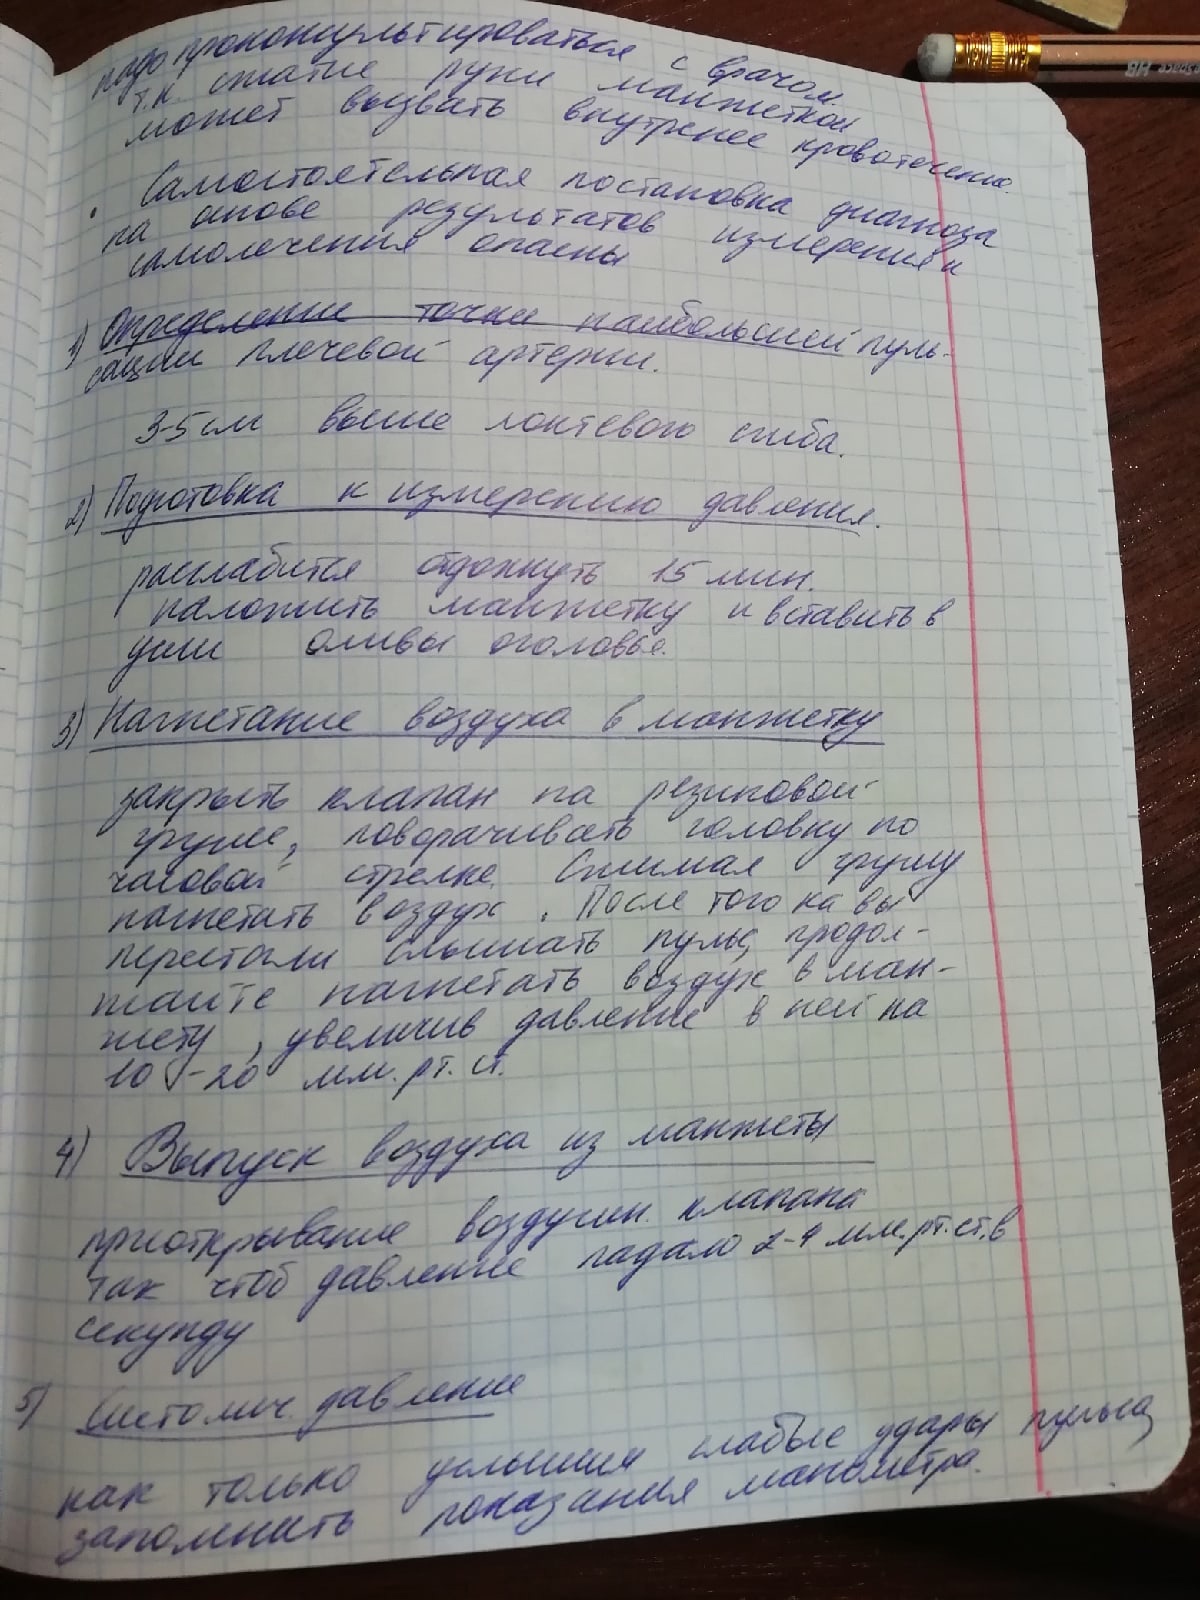 надо проконсультироваться с врачом.
т.к. сжатие руки манжеткой
может вызвать внутренее кровотечение.
• Самостоятельная постановка диагноза
на онове результатов измерения и
самолечения опасны
1) Определение точки наибольшей пуль-
сации плечевой артерии.
3-5 см выше локтевого сгиба.
2) Подготовка к измерению давления.
расслабится отдохнуть 15 мин.
наложить манжетку и вставить в
уши оливы оголовье.
3) Нагнетание воздуха в манжетку
закрыть клапан на резиновой
груше, поворачивать головку по
часовой стрелке. Сжимая грушу
нагнетать воздух. После того ка вы
перестали слышать пульс, продол-
жайте нагнетать воздух в ман-
жету, увеличив давление в ней на
10-20 мм.рт.ст.
4) Выпуск воздуха из манжеты
приоткрывание воздушн. клапана
так чтоб давление падало 2-4 мм.рт.ст.в
секунду
5) Систолич. давление
как только услышим слабые удары пульса,
запомнить показания манометра.
HB